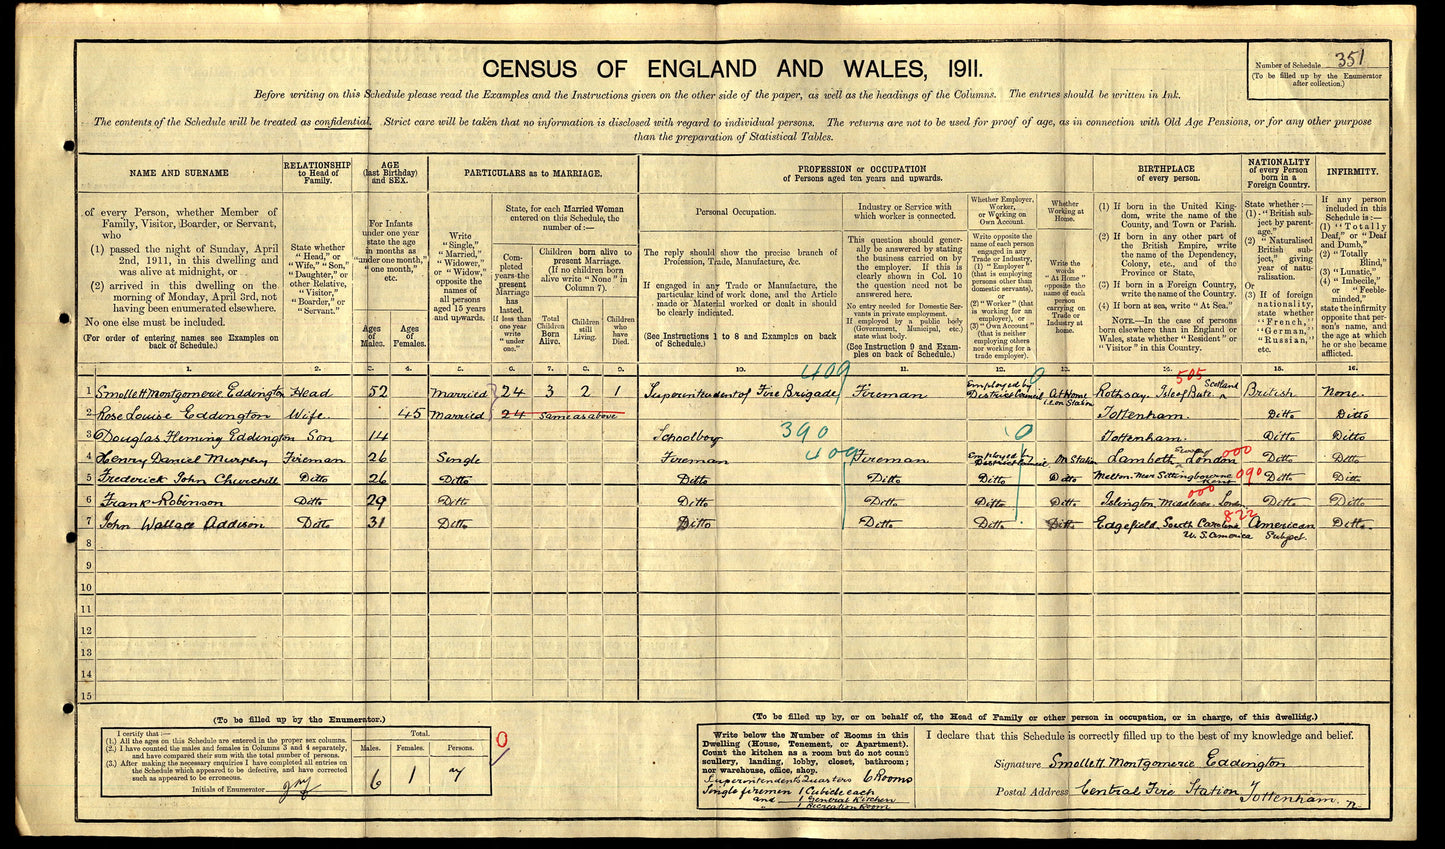 CENSUS OF ENGLAND AND WALES, 1911.
Number of Schedule 351
(To be filled up by the Enumerator after collection.)
Before writing on this Schedule please read the Examples and the Instructions given on the other side of the paper, as well as the headings of the Columns. The entries should be written in Ink.
The contents of the Schedule will be treated as confidential. Strict care will be taken that no information is disclosed with regard to individual persons. The returns are not to be used for proof of age, as in connection with Old Age Pensions, or for any other purpose
than the preparation of Statistical Tables.
NAME AND SURNAME
of every Person, whether Member of
Family, Visitor, Boarder, or Servant,
who
(1) passed the night of Sunday, April
2nd, 1911, in this dwelling and
was alive at midnight, or
(2) arrived in this dwelling on the
morning of Monday, April 3rd, not
having been enumerated elsewhere.
No one else must be included.
(For order of entering names see Examples on
back of Schedule.)
RELATIONSHIP
to Head of
Family.
State whether
"Head," or
"Wife," "Son,"
"Daughter," or
other Relative,
"Visitor,"
"Boarder," or
"Servant."
AGE
(last Birthday)
and SEX.
For Infants
under one year
state the age
in months as
"under one month,"
"one month,"
etc.
Ages
of
Males.
Ages
of
Females.
PARTICULARS as to MARRIAGE.
Write
"Single,"
"Married,"
"Widower,"
or "Widow,"
opposite the
names of
all persons
aged 15 years
and upwards.
State, for each Married Woman
entered on this Schedule, the
number of:—
Completed years the present Marriage has lasted. If less than one year write "under one."
Children born alive to
present Marriage.
(If no children born
alive write "None" in
Column 7).
Total
Children
Born
Alive.
Children
still
Living.
Children
who
have
Died.
PROFESSION or OCCUPATION
of Persons aged ten years and upwards.
Personal Occupation.
The reply should show the precise branch of
Profession, Trade, Manufacture, &c.
If engaged in any Trade or Manufacture, the
particular kind of work done, and the Article
made or Material worked or dealt in should
be clearly indicated.
(See Instructions 1 to 8 and Examples on back
of Schedule.)
Industry or Service with
which worker is connected.
This question should gener-
ally be answered by stating
the business carried on by
the employer. If this is
clearly shown in Col. 10
the question need not be
answered here.
No entry needed for Domestic Ser-
vants in private employment.
If employed by a public body
(Government, Municipal, etc.)
state what body.
(See Instruction 9 and Exam-
ples on back of Schedule.)
Whether Employer,
Worker,
or Working on
Own Account.
Write opposite the
name of each
person engaged in any
Trade or Industry,
(1) "Employer"
(that is employing
persons other than
domestic servants),
or
(2) "Worker" (that
is working for an
employer), or
(3) "Own Account"
(that is neither
employing others
nor working for a
trade employer).
Whether
Working at
Home.
Write the
words
"At Home"
opposite the
name of each
person
carrying on
Trade or
Industry at
home.
BIRTHPLACE
of every person.
(1) If born in the United King-
dom, write the name of the
County, and Town or Parish.
(2) If born in any other part of
the British Empire, write
the name of the Dependency,
Colony, etc., and of the
Province or State.
(3) If born in a Foreign Country,
write the name of the Country.
(4) If born at sea, write "At Sea."
NOTE.—In the case of persons
born elsewhere than in England or
Wales, state whether "Resident" or
"Visitor" in this Country.
NATIONALITY
of every Person
born in a
Foreign Country.
State whether:—
(1) "British sub-
ject by parent-
age."
(2) "Naturalised
British sub-
ject," giving
year of natu-
ralisation.
Or
(3) If of foreign
nationality,
state whether
"French,"
"German,"
"Russian,"
etc.
INFIRMITY.
If any person
included in this
Schedule is:—
(1) "Totally
Deaf," or "Deaf
and Dumb,"
(2) "Totally
Blind,"
(3) "Lunatic,"
(4) "Imbecile,"
or "Feeble-
minded,"
state the infirmity
opposite that per-
son's name, and
the age at which
he or she became
afflicted.
1. 2. 3. 4. 5. 6. 7. 8. 9. 10. 11. 12. 13. 14. 15. 16.
409 0 505
1 Smollett Montgomerie Eddington Head 52 Married 24 3 2 1 Superintendent of Fire Brigade Fireman Employed by District Council At Home i.e. on Station Rothsay Isle of Bute Scotland British None.
2 Rose Louise Eddington Wife. 45 Married 24 same as above Tottenham. Ditto Ditto
3 Douglas Fleming Eddington Son 14 Schoolboy 390 0 Tottenham. Ditto Ditto
4 Henry Daniel Murphy Fireman 26 Single Fireman 409 Fireman Employed by District Council On Station Lambeth Surrey London 000 Ditto Ditto
5 Frederick John Churchill Ditto 26 Ditto Ditto Ditto Ditto Ditto Melton. Near Sittingbourne Kent 090 Ditto Ditto
6 Frank Robinson Ditto 29 Ditto Ditto Ditto Ditto Ditto Islington, Middlesex. London 000 Ditto Ditto
7 John Wallace Addison Ditto 31 Ditto Ditto Ditto Ditto Ditto Edgefield. South Carolina U.S. America 822 American Subject. Ditto.
8
9
10
11
12
13
14
15
(To be filled up by the Enumerator.)
I certify that:—
(1.) All the ages on this Schedule are entered in the proper sex columns.
(2.) I have counted the males and females in Columns 3 and 4 separately,
and have compared their sum with the total number of persons.
(3.) After making the necessary enquiries I have completed all entries on
the Schedule which appeared to be defective, and have corrected
such as appeared to be erroneous.
Initials of Enumerator
Total.
Males. Females. Persons.
6 1 7
0
(To be filled up by, or on behalf of, the Head of Family or other person in occupation, or in charge, of this dwelling.)
Write below the Number of Rooms in this
Dwelling (House, Tenement, or Apartment).
Count the kitchen as a room but do not count
scullery, landing, lobby, closet, bathroom;
nor warehouse, office, shop.
Superintendents Quarters 6 Rooms
Single firemen 1 Cubicle each
and 1 General Kitchen
" 1 Recreation Room
I declare that this Schedule is correctly filled up to the best of my knowledge and belief.
Signature Smollett Montgomerie Eddington
Postal Address Central Fire Station Tottenham. N.